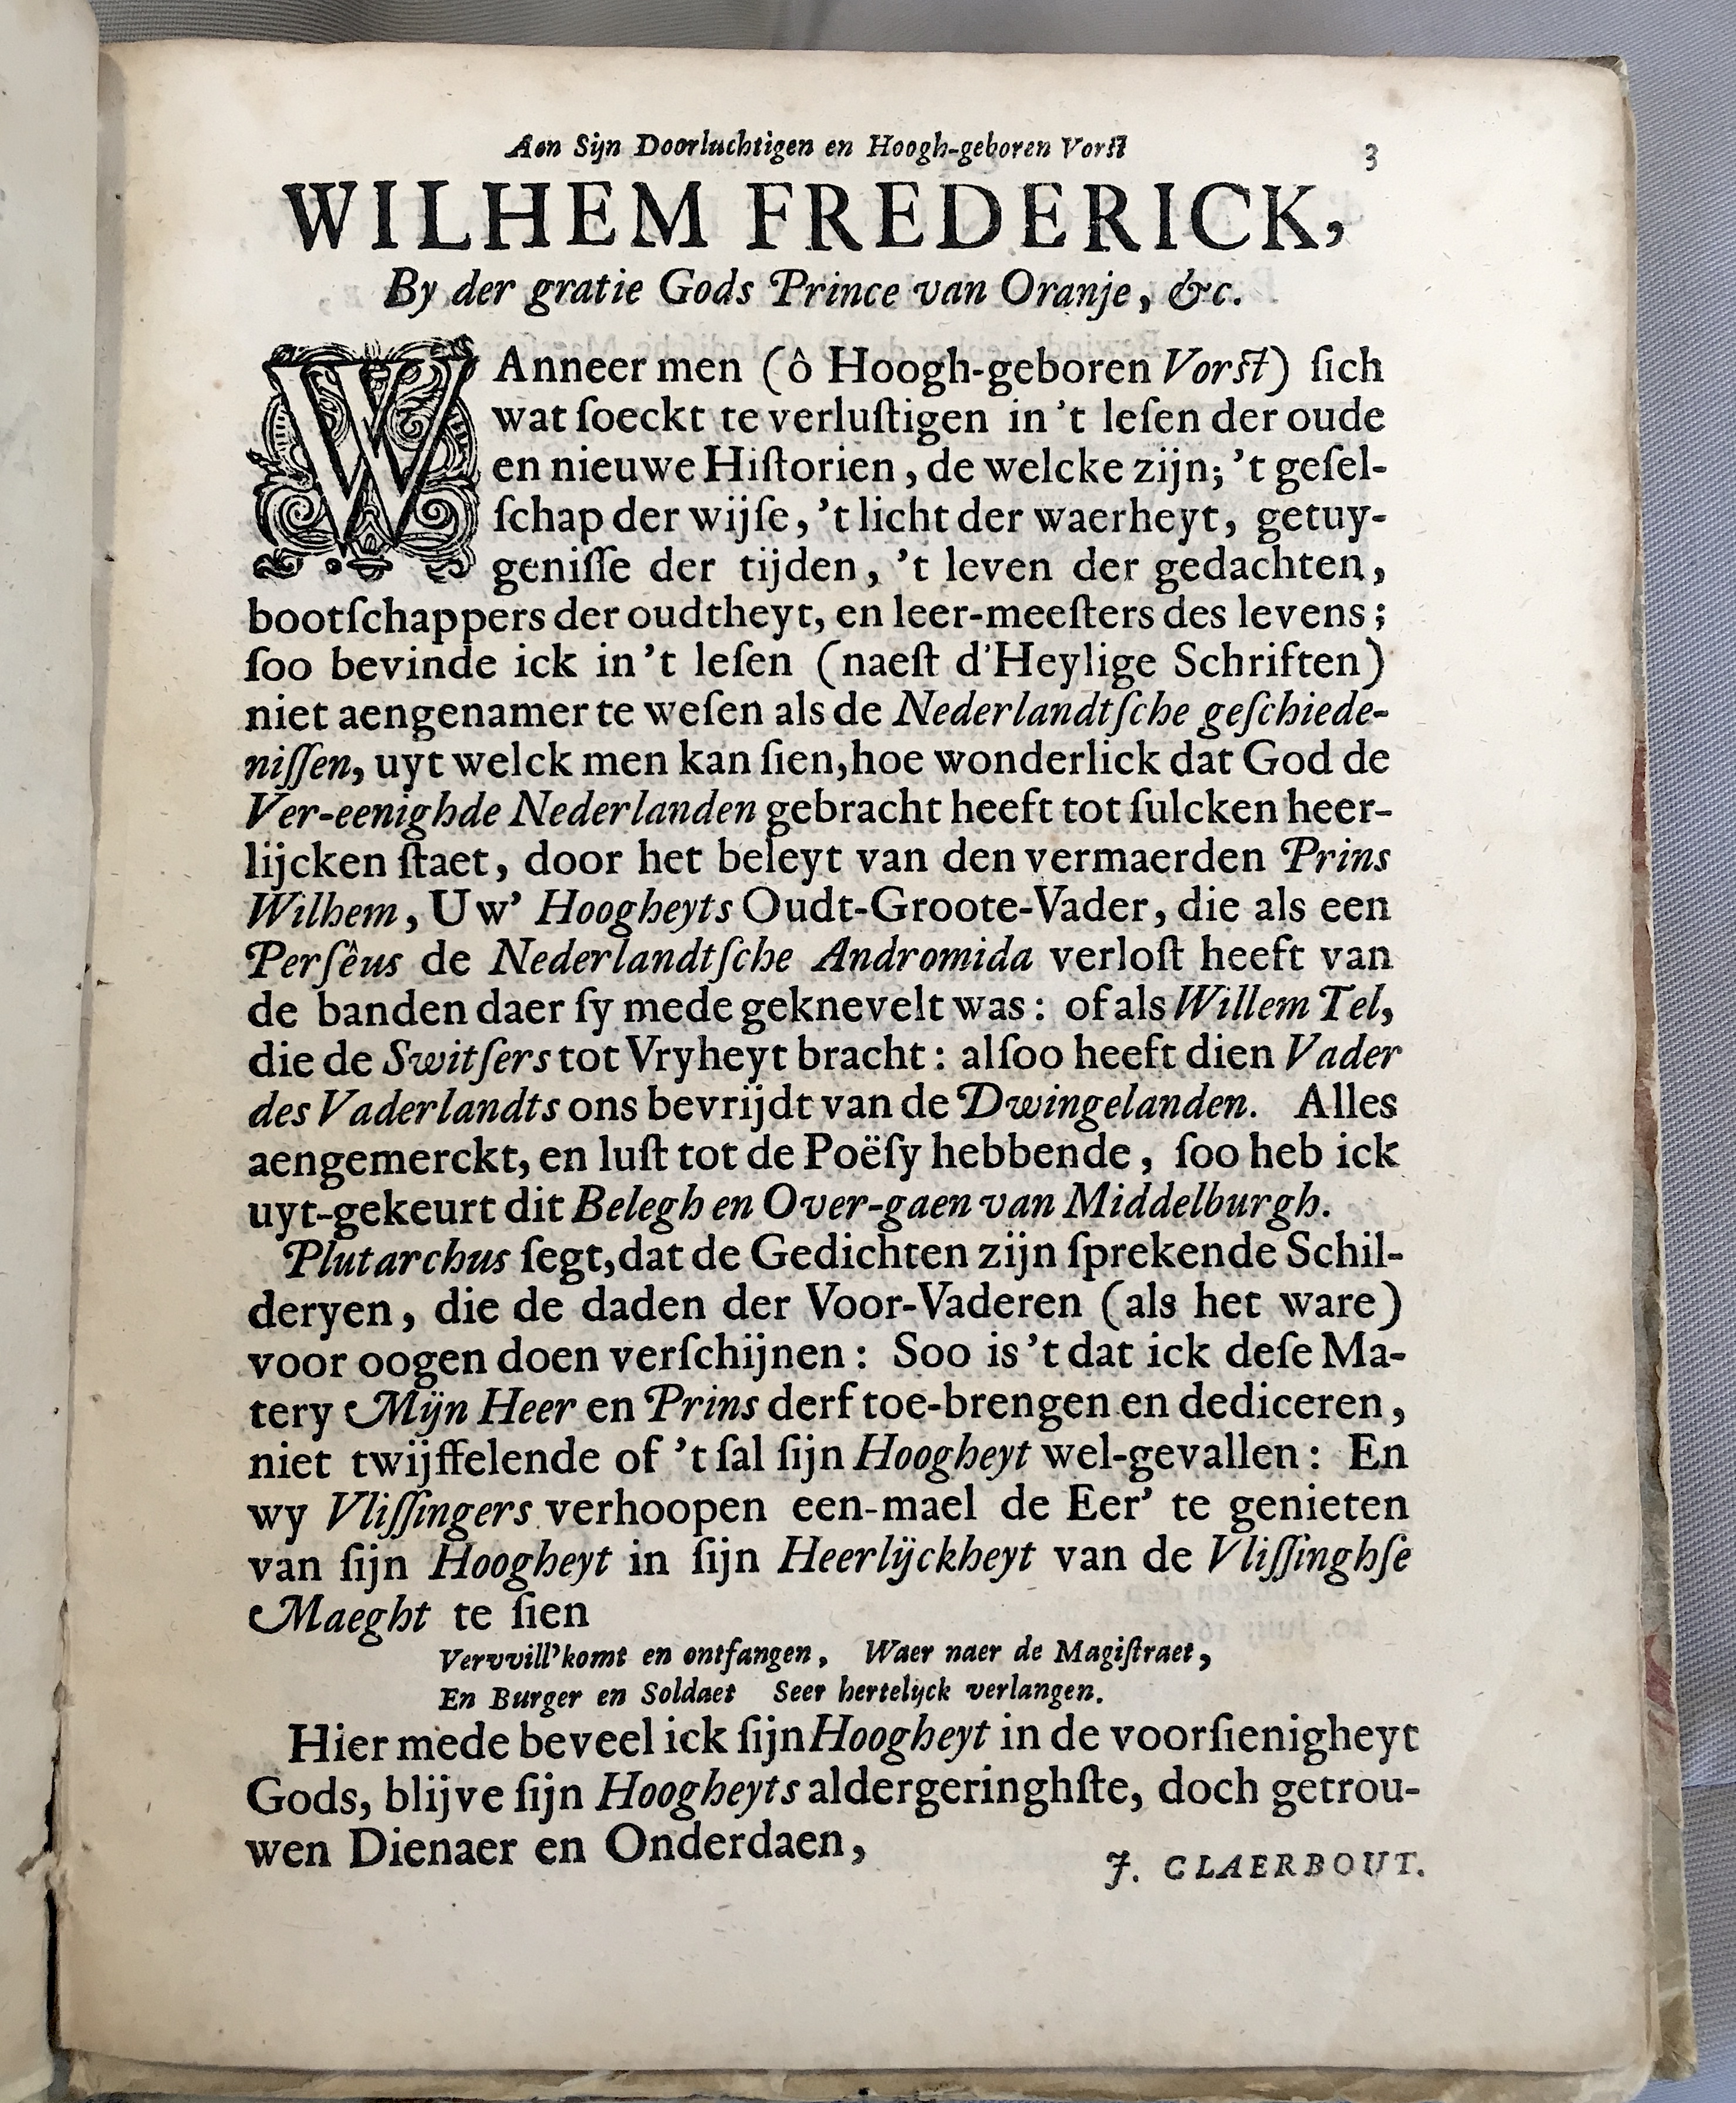 Aen Sijn Doorluchtigen en Hoogh-geboren Vorſt 3
WILHEM FREDERICK,
By der gratie Gods Prince van Oranje, &c.
WAnneer men (ô Hoogh-geboren Vorſt) ſich
wat ſoeckt te verluſtigen in 't leſen der oude
en nieuwe Hiſtorien, de welcke zijn; 't geſel-
ſchap der wijſe, 't licht der waerheyt, getuy-
geniſſe der tijden, 't leven der gedachten,
bootſchappers der oudtheyt, en leer-meeſters des levens;
ſoo bevinde ick in 't leſen (naeſt d'Heylige Schriften)
niet aengenamer te weſen als de Nederlandtſche geſchiede-
niſſen, uyt welck men kan ſien, hoe wonderlick dat God de
Ver-eenighde Nederlanden gebracht heeft tot ſulcken heer-
lijcken ſtaet, door het beleyt van den vermaerden Prins
Wilhem, Uw' Hoogheyts Oudt-Groote-Vader, die als een
Perſêus de Nederlandtſche Andromida verloſt heeft van
de banden daer ſy mede geknevelt was: of als Willem Tel,
die de Switſers tot Vryheyt bracht: alſoo heeft dien Vader
des Vaderlandts ons bevrijdt van de Dwingelanden. Alles
aengemerckt, en luſt tot de Poëſy hebbende, ſoo heb ick
uyt-gekeurt dit Belegh en Over-gaen van Middelburgh.
Plutarchus ſegt, dat de Gedichten zijn ſprekende Schil-
deryen, die de daden der Voor-Vaderen (als het ware)
voor oogen doen verſchijnen: Soo is 't dat ick deſe Ma-
tery Mijn Heer en Prins derf toe-brengen en dediceren,
niet twijffelende of 't ſal ſijn Hoogheyt wel-gevallen: En
wy Vliſſingers verhoopen een-mael de Eer' te genieten
van ſijn Hoogheyt in ſijn Heerlijckheyt van de Vliſſinghſe
Maeght te ſien
Vervvill'komt en ontfangen, Waer naer de Magiſtraet,
En Burger en Soldaet Seer hertelijck verlangen.
Hier mede beveel ick ſijn Hoogheyt in de voorſienigheyt
Gods, blijve ſijn Hoogheyts aldergeringhſte, doch getrou-
wen Dienaer en Onderdaen,
J. CLAERBOUT.